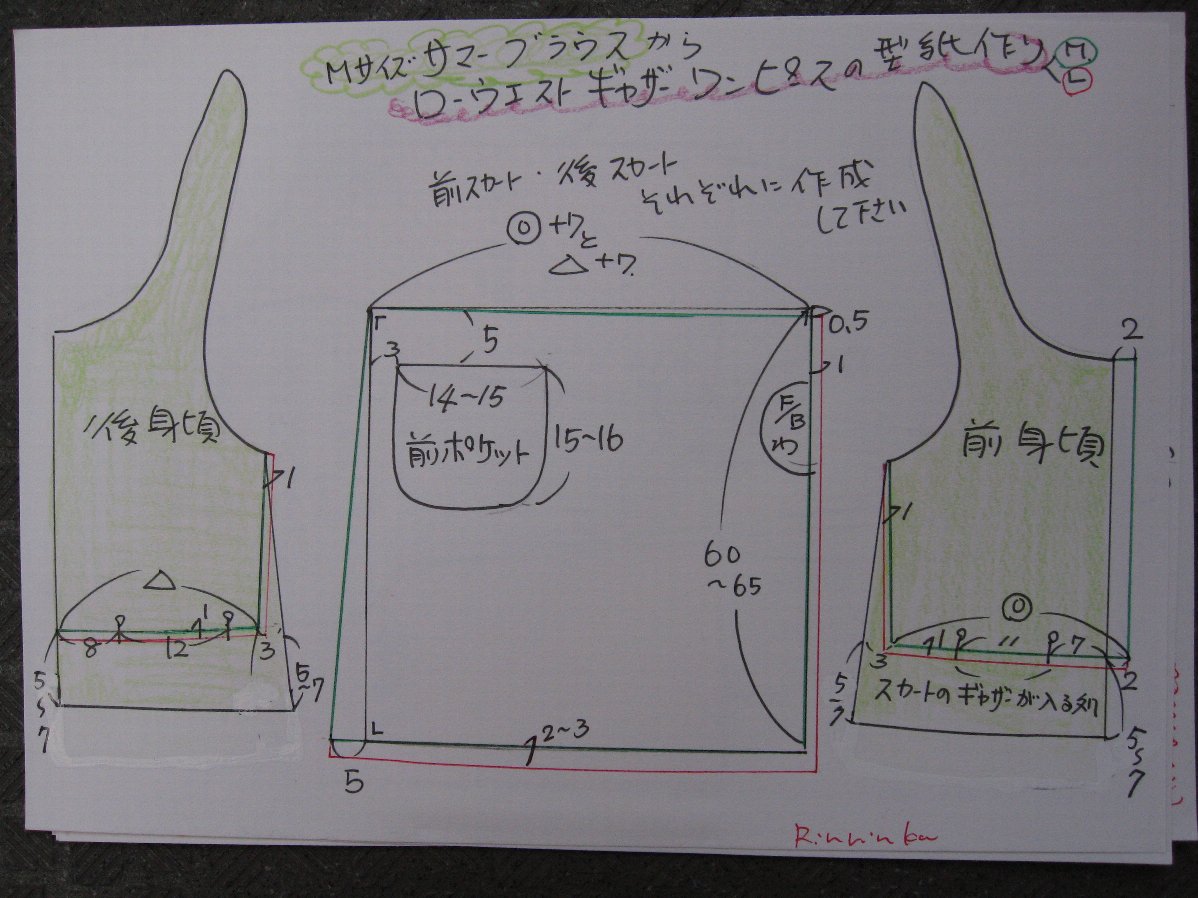 Mサイズサマーブラウスから
ローウエストギャザーワンピースの型紙作り M
L
前スカート・後スカート
それぞれに作成
して下さい
◎+7と
△+7
0.5
2
5
3
1
14~15
15~16
前ポケット
F/B
わ
後身頃
前身頃
1
1
60
~65
△
◎
1
8
12
3
5~7
5~7
1
11
7
3
2
スカートのギャザーが入る処
5~7
5~7
2~3
5
Rinrinka